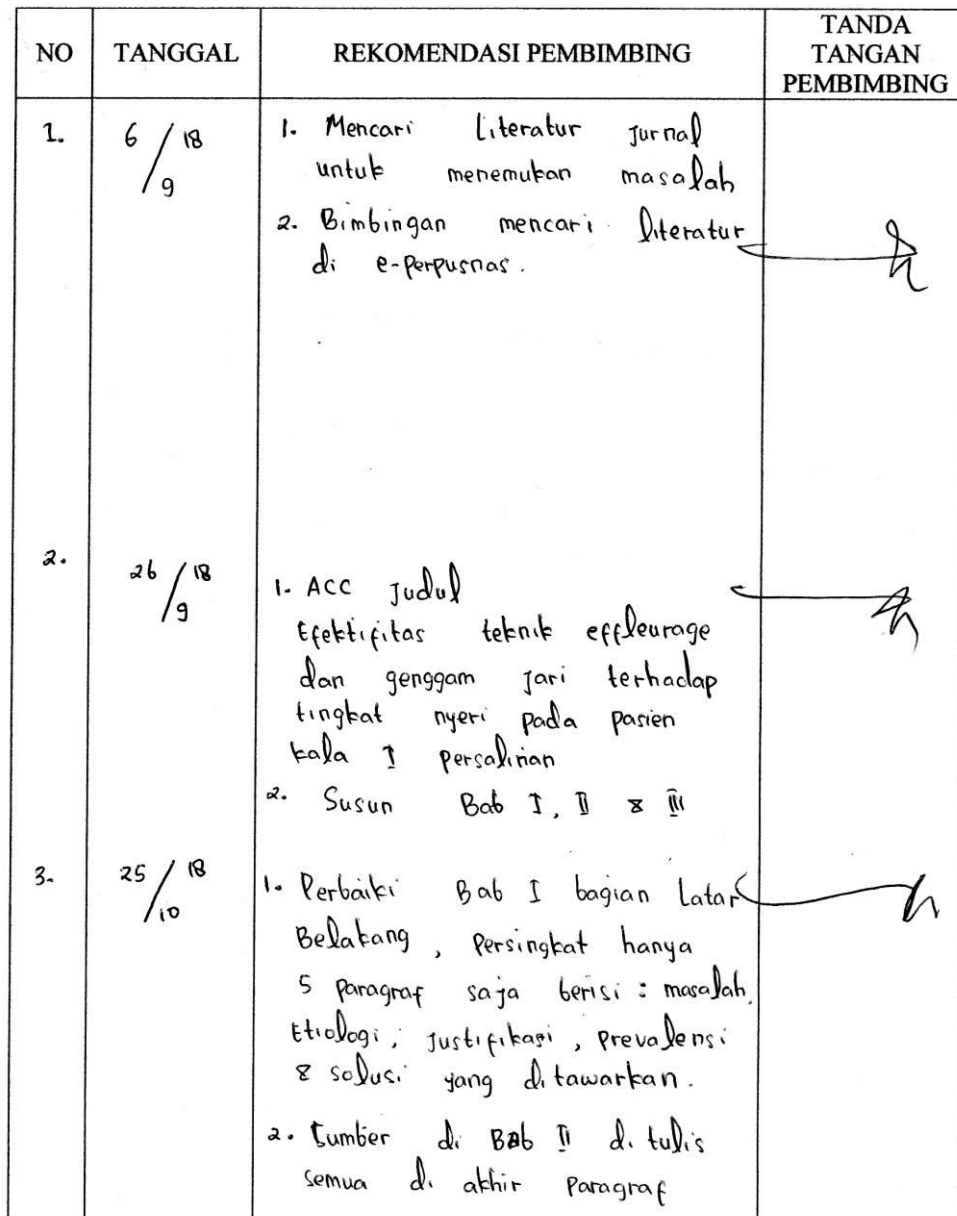 NO TANGGAL REKOMENDASI PEMBIMBING TANDA TANGAN PEMBIMBING
1. 6/9 18 1. Mencari Literatur Jurnal
untuk menemukan masalah
2. Bimbingan mencari literatur
di e-perpusnas.
2. 26/9 18 1. ACC Judul
Efektifitas teknik effleurage
dan genggam jari terhadap
tingkat nyeri pada pasien
kala I persalinan
2. Susun Bab I, II & III
3. 25/10 18 1. Perbaiki Bab I bagian Latar
Belakang, Persingkat hanya
5 Paragraf saja berisi : masalah,
Etiologi, Justifikasi, Prevalensi
& solusi yang ditawarkan.
2. Sumber di Bab II di tulis
semua di akhir Paragraf